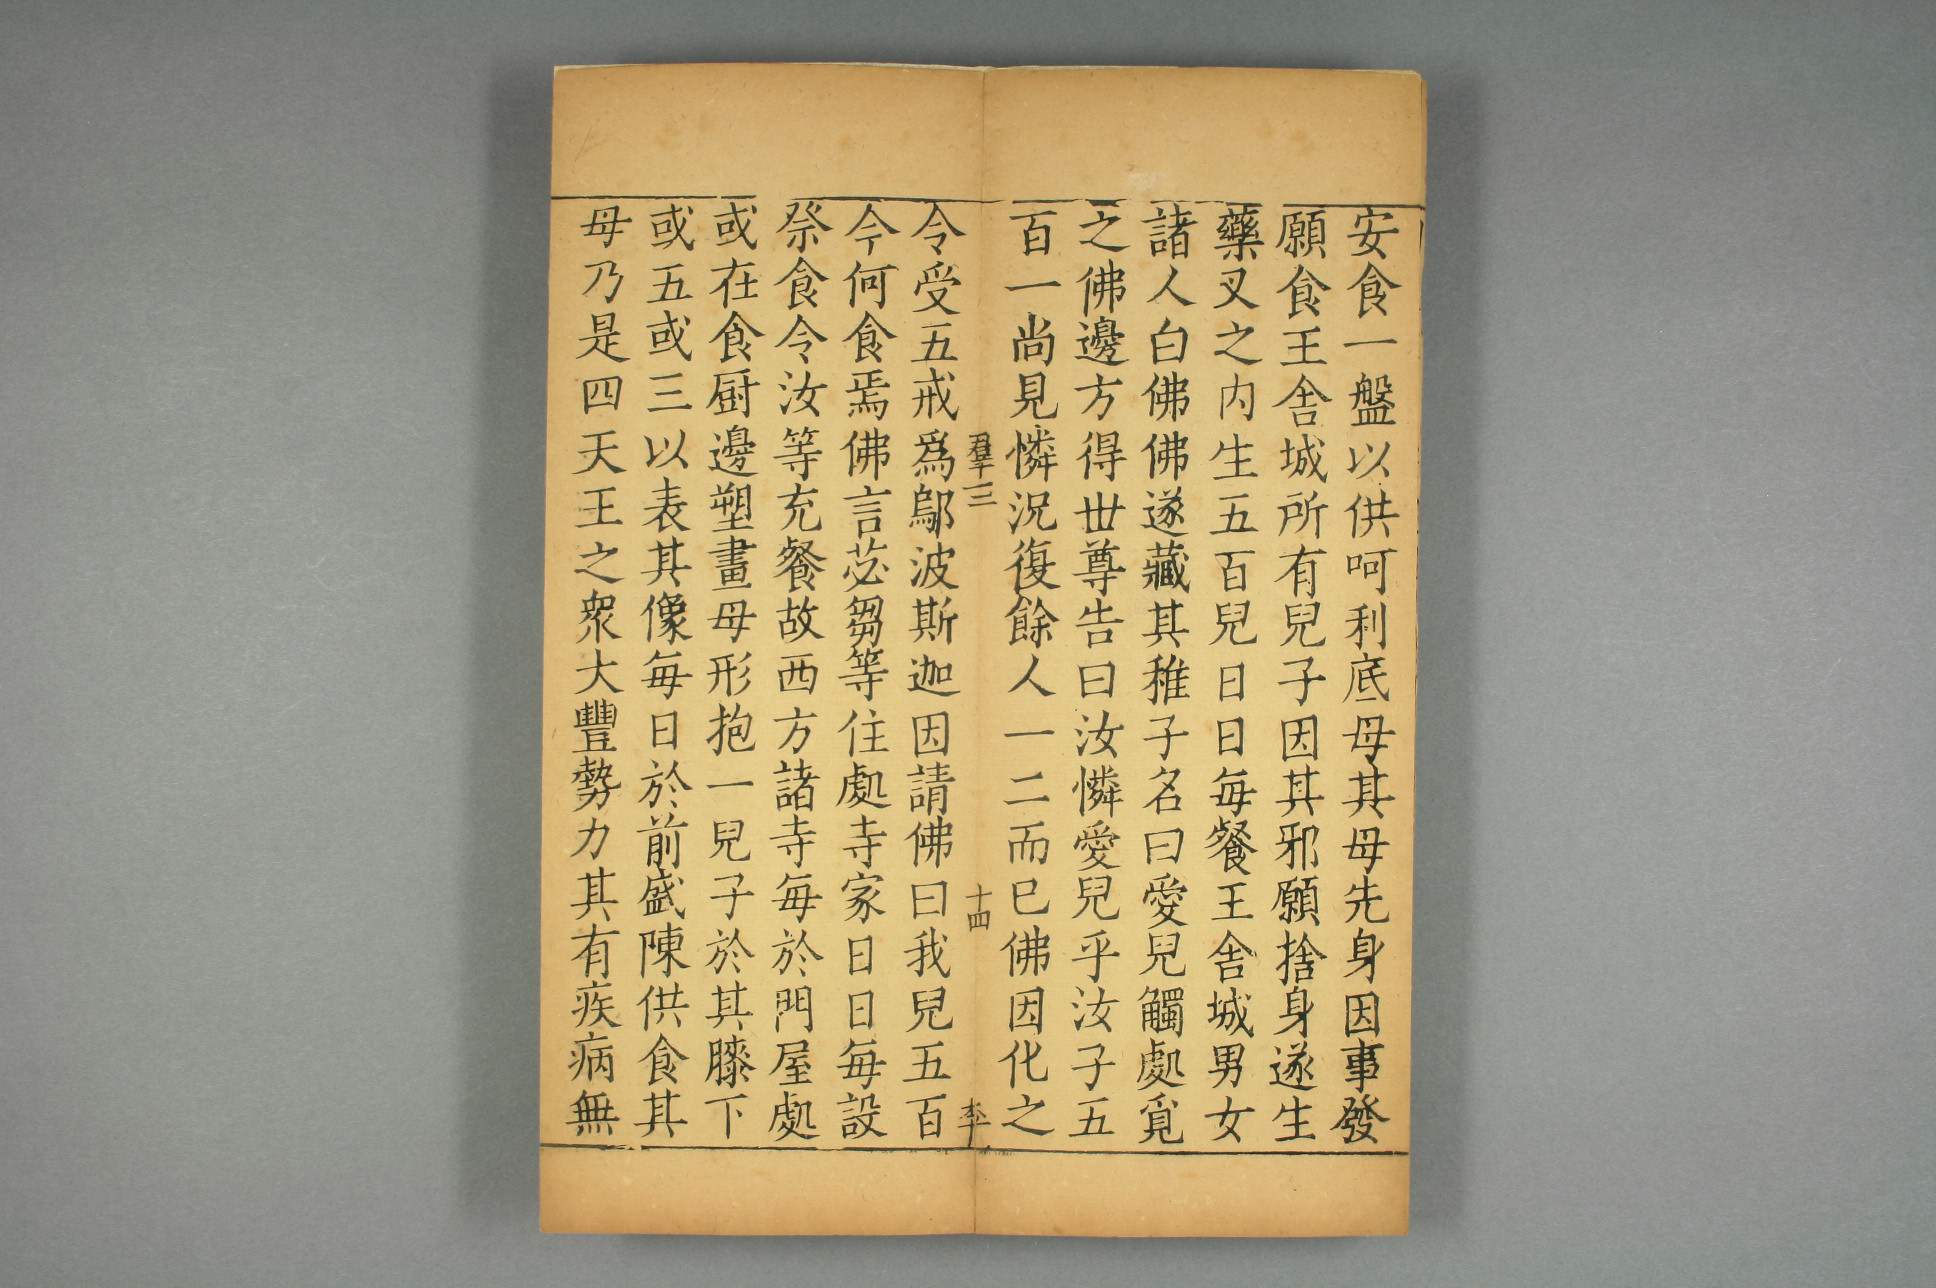 安食一盤以供呵利底母其母先身因事發
願食王舍城所有兒子因其邪願捨身遂生
藥叉之內生五百兒日日每餐王舍城男女
諸人白佛佛遂藏其稚子名曰愛兒觸處覓
之佛邊方得世尊告曰汝憐愛兒乎汝子五
百一尚見憐況復餘人一二而已佛因化之
羣三
十四
李
令受五戒爲鄔波斯迦因請佛曰我兒五百
今何食焉佛言苾芻等住處寺家日日每設
祭食令汝等充餐故西方諸寺每於門屋處
或在食厨邊塑畫母形抱一兒子於其膝下
或五或三以表其像每日於前盛陳供食其
母乃是四天王之衆大豐勢力其有疾病無